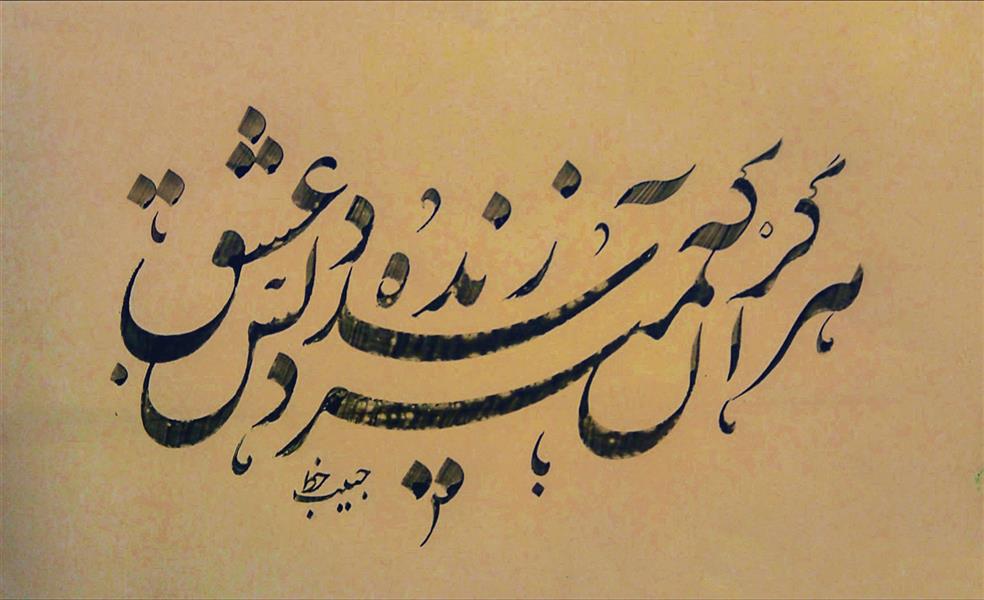 هرگز نمیرد آنکه دلش زنده شد به عشق
حبیب خط